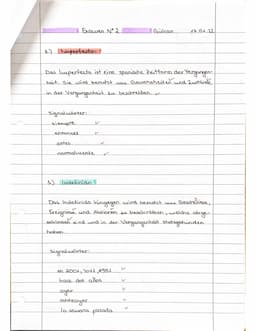 Examen N°2
2.) Imperfecto:
Das Imperfecto ist eine spanische Zeitform der Vergangen-
heit. Sie wird benutzt um Gewohnheiten und Zustände
in der Vergangenheit zu beschreiben.
Signalwörter:
siempre
entonces
antes
normalmente
3.) Indefinido:
Das Indefinido hingegen wird benutzt um Erlebnisse,
Ereignisse und Aktionen zu beschreiben, welche abge-
schlossen sind und in der Vergangenheit stattgefunden
haben.
Signalwörter:
en 2004,
hace dos años
ayer
anteayer
la semana pasada